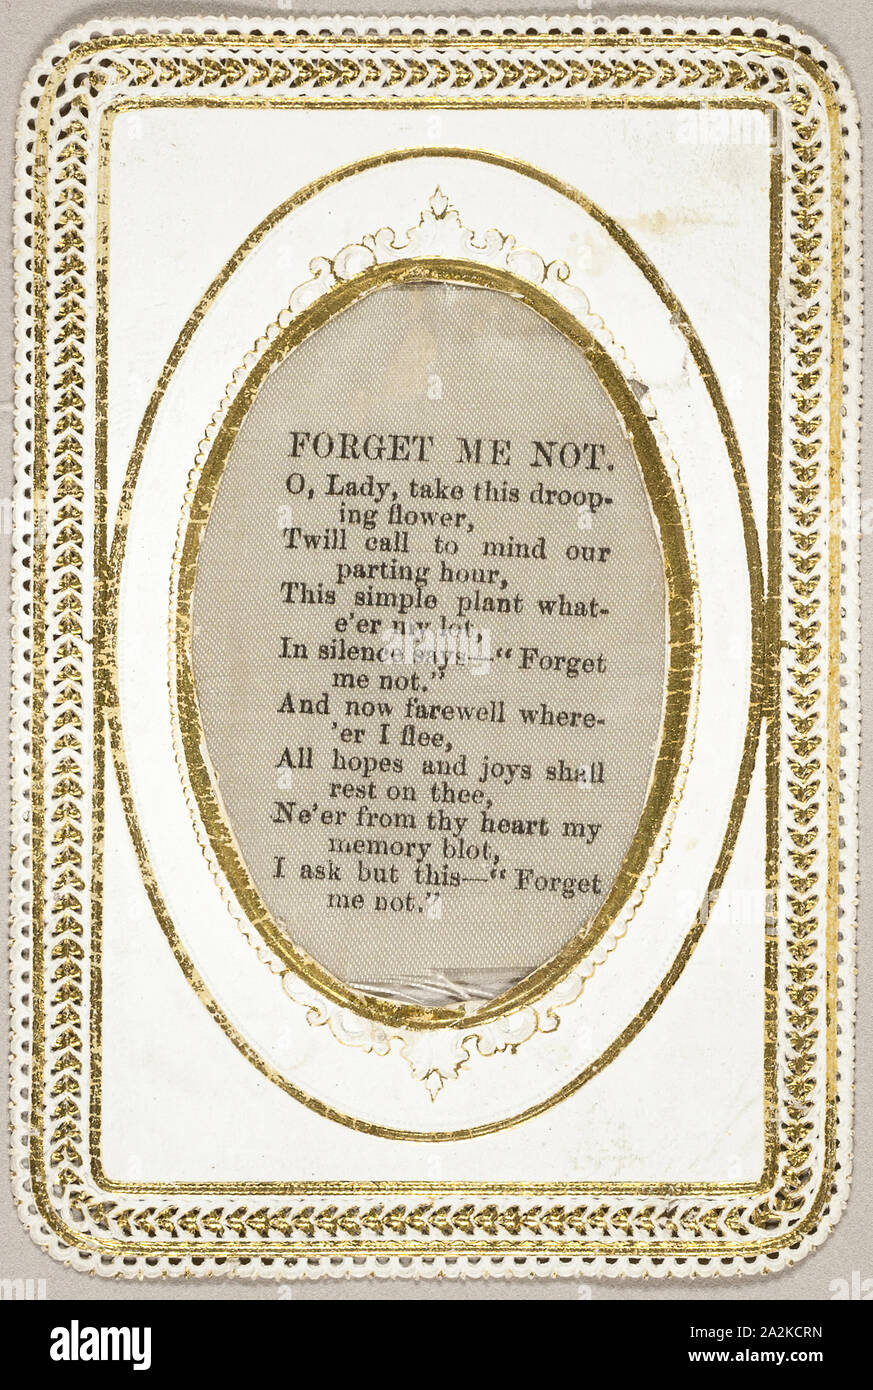 FORGET ME NOT.
O, Lady, take this droop-
ing flower,
Twill call to mind our
parting hour,
This simple plant what-
e'er my lot,
In silence says—“Forget
me not.”
And now farewell where-
'er I flee,
All hopes and joys shall
rest on thee,
Ne'er from thy heart my
memory blot,
I ask but this—“Forget
me not.”
alamy
Image ID: 2A2KCRN
www.alamy.com